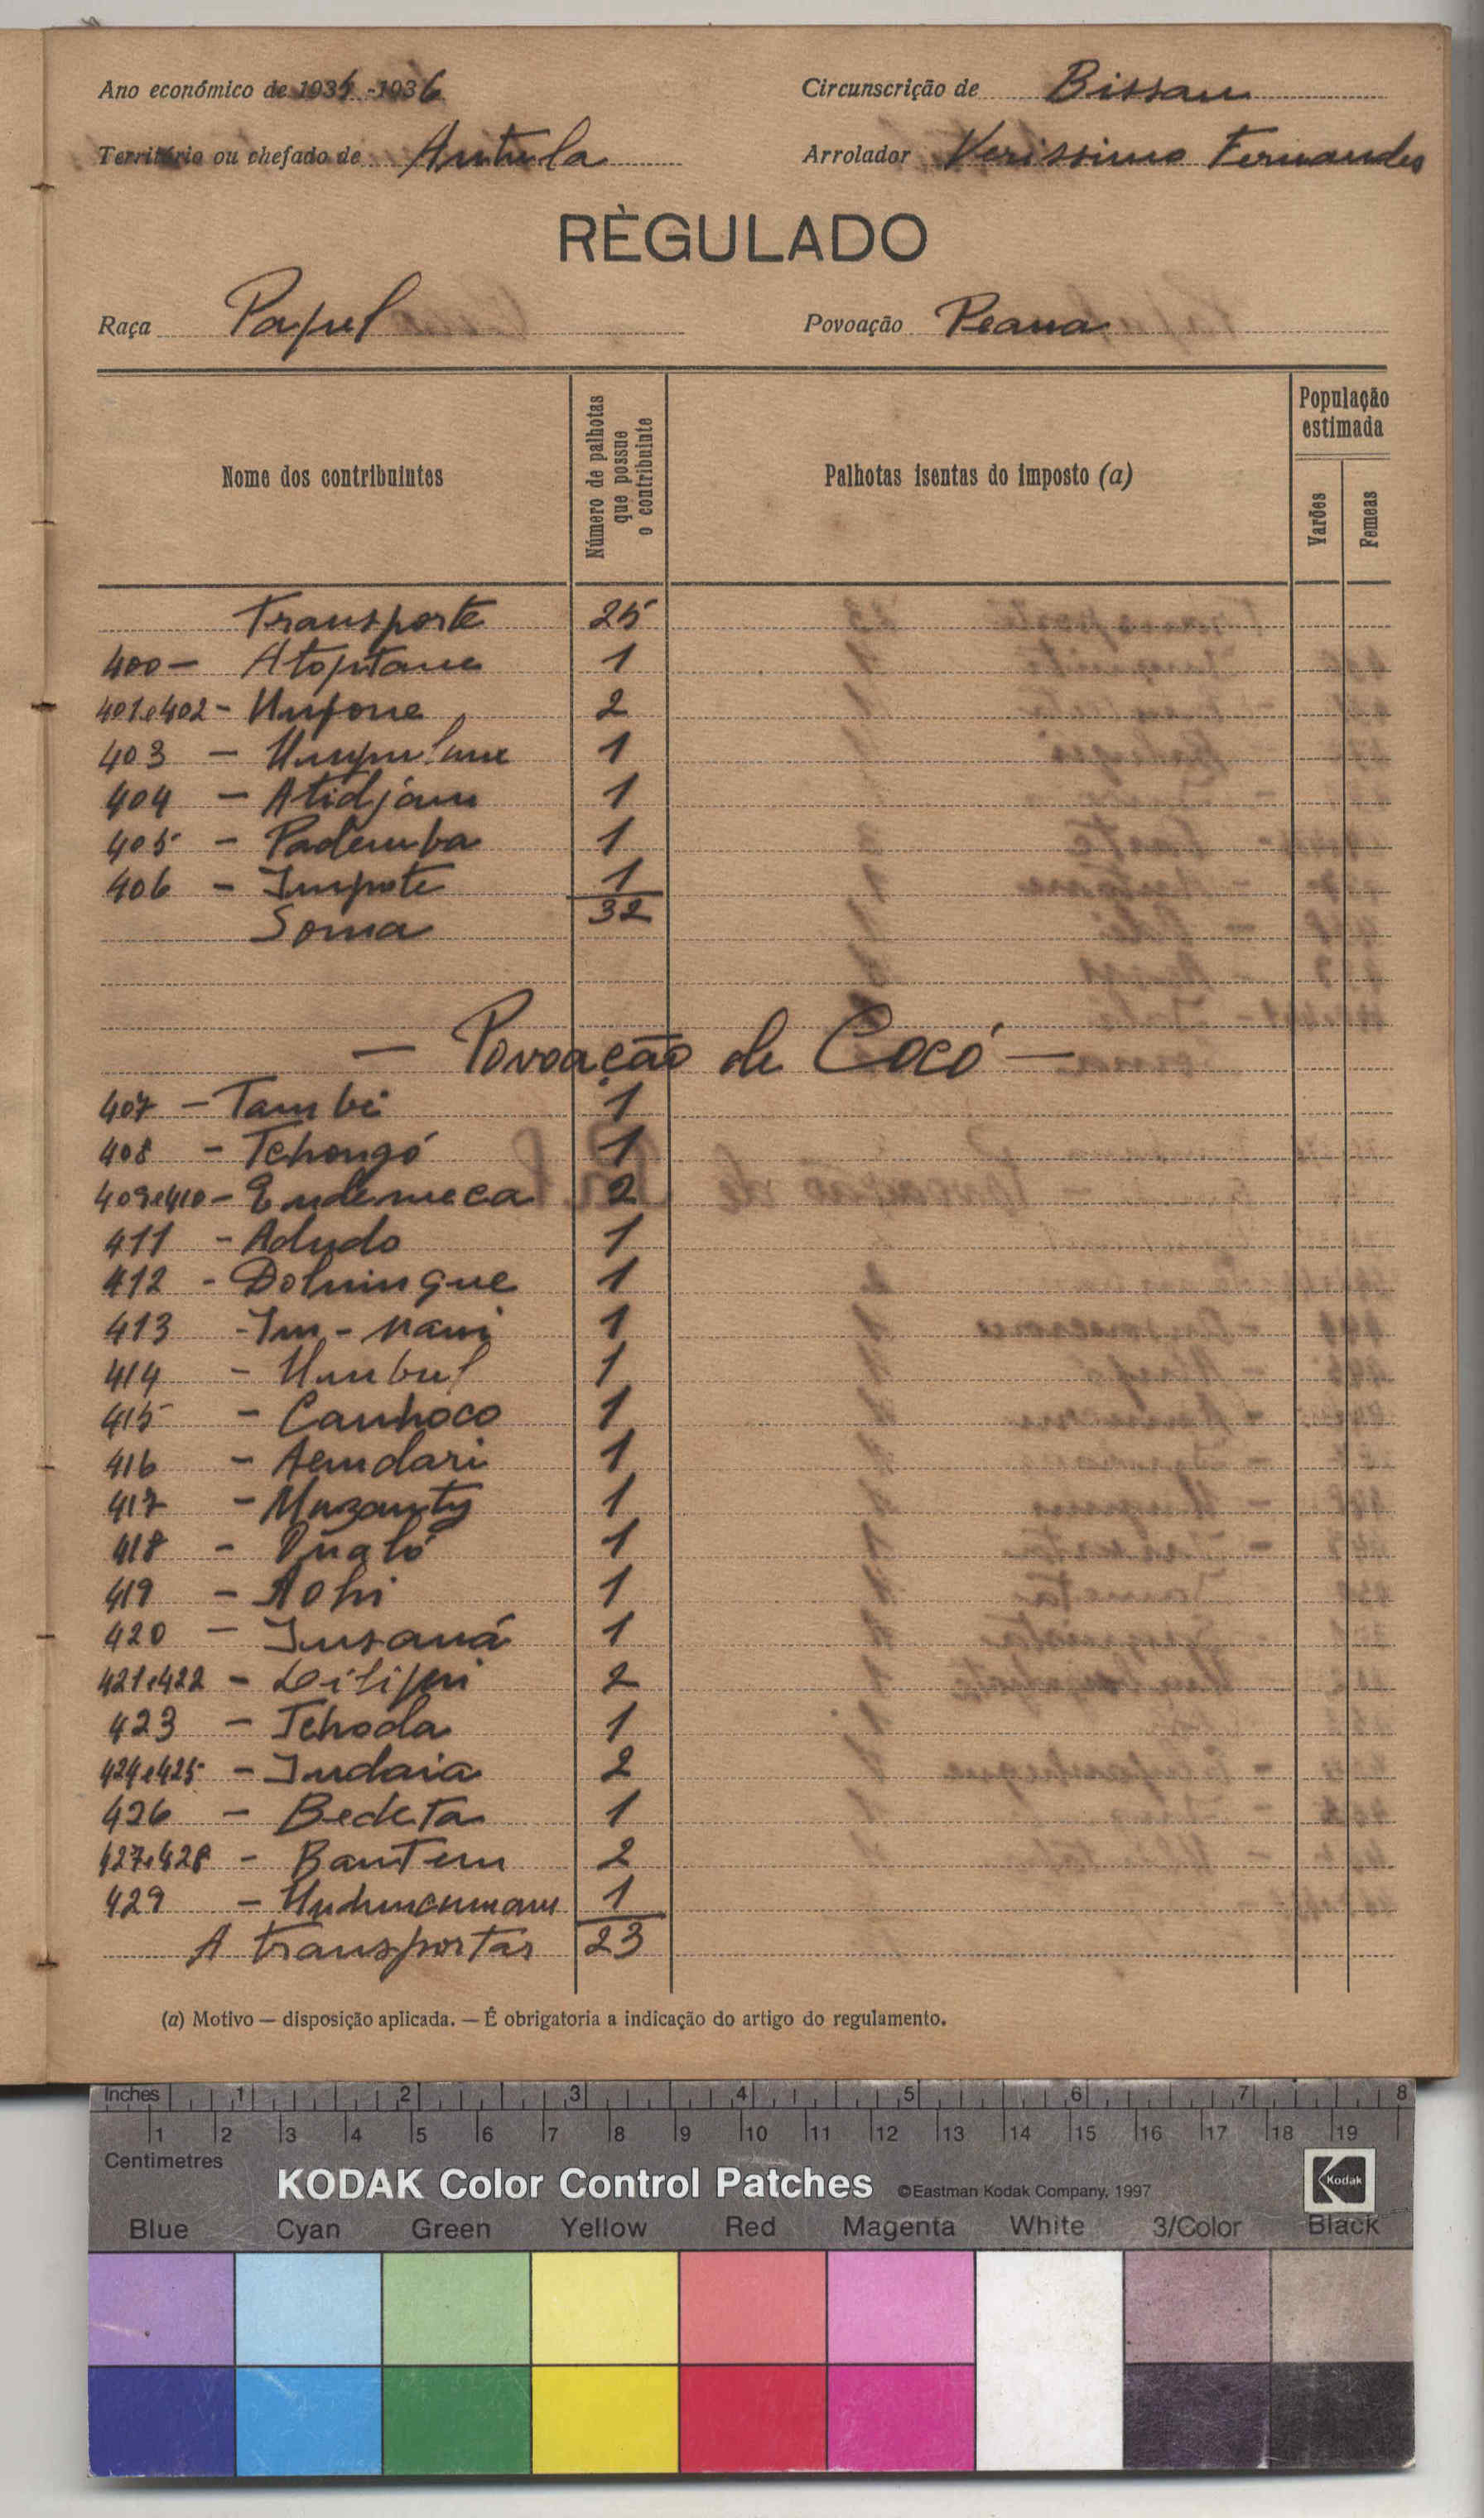 Ano económico de 1935-1936 Circunscrição de Bissau
Território ou chefado de Antula Arrolador Verissimo Fernandes
RÈGULADO
Raça Papel Povoação Peana
Nome dos contribuintes
Número de palhotas que possue o contribuinte
Palhotas isentas do imposto (a)
População estimada
Varões
Femeas
Transporte 25
400 - 1
401 e 402 - Unfone 2
403 - 1
404 - Atidjam 1
405 - Pademba 1
406 - Impote 1
Soma 32
- Povoação de Cocó -
407 - Tambi 1
408 - Tchongó 1
409 e 410 - Endemeca 2
411 - Adudo 1
412 - Domingue 1
413 - Im-nami 1
414 - Umbul 1
415 - Canhoco 1
416 - Aemdari 1
417 - 1
418 - 1
419 - 1
420 - Insaná 1
421 e 422 - 2
423 - Tchoda 1
424 e 425 - Indaia 2
426 - Bedeta 1
427 e 428 - Bantem 2
429 - 1
A transportar 23
(a) Motivo — disposição aplicada. — É obrigatoria a indicação do artigo do regulamento.
Inches 1 2 3 4 5 6 7 8
1 2 3 4 5 6 7 8 9 10 11 12 13 14 15 16 17 18 19
Centimetres
KODAK Color Control Patches ©Eastman Kodak Company, 1997 Kodak
Blue Cyan Green Yellow Red Magenta White 3/Color Black